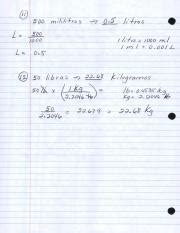 11) 500 mililitros → 0.5 litros
L = 500/1000
1 litro = 1000 ml
1 ml = 0.001 L
L = 0.5
12) 50 libras → 22.68 Kilogramos
50 lb × (1 Kg / 2.2046 lb)
lb = 0.4536 Kg
kg = 2.2046 lb
50/2.2046 = 22.679 = 22.68 Kg